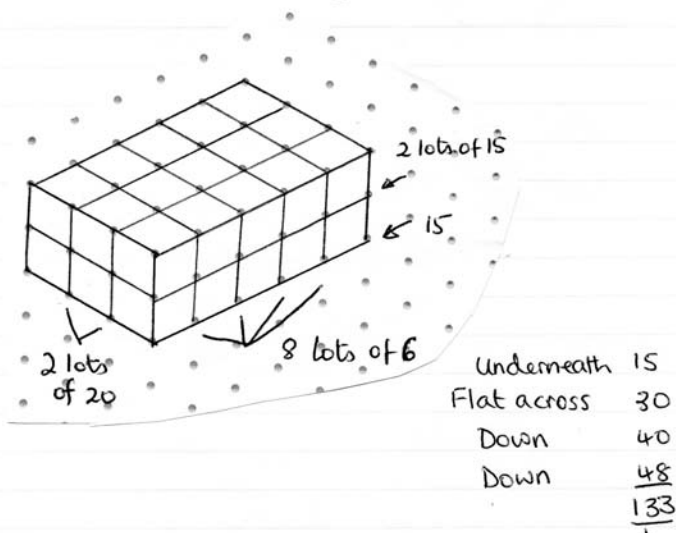 2 lots of 15
15
8 lots of 6
2 lots
of 20
Underneath 15
Flat across 30
Down 40
Down 48
133